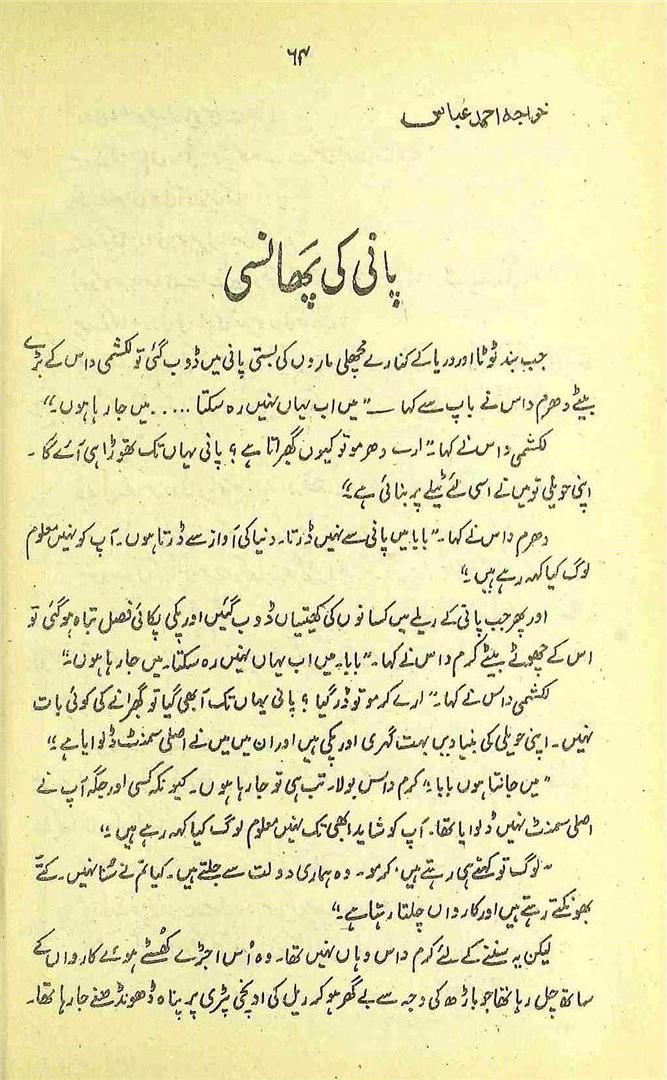 ۶۴
خواجہ احمد عباس
پانی کی پھانسی
جب بند ٹوٹا اور دریا کے کنارے مچھلی ماروں کی بستی پانی میں ڈوب گئی تو لکشمی داس کے بڑے
بیٹے دھرم داس نے باپ سے کہا — "میں اب یہاں نہیں رہ سکتا ..... میں جا رہا ہوں۔"
لکشمی داس نے کہا۔ "ارے دھرمو تو کیوں گھبراتا ہے؟ پانی یہاں تک تھوڑا ہی آئے گا۔
اپنی حویلی تو میں نے اسی لئے ٹیلے پر بنائی ہے۔"
دھرم داس نے کہا۔ "بابا میں پانی سے نہیں ڈرتا۔ دنیا کی آواز سے ڈرتا ہوں۔ آپ کو نہیں معلوم
لوگ کیا کہہ رہے ہیں۔"
اور پھر جب پانی کے ریلے میں کسانوں کی کھیتیاں ڈوب گئیں اور پکی پکائی فصل تباہ ہو گئی تو
اس کے چھوٹے بیٹے کرم داس نے کہا۔ "بابا۔ میں اب یہاں نہیں رہ سکتا۔ میں جا رہا ہوں۔"
لکشمی داس نے کہا۔ "ارے کرمو تو ڈر گیا؟ پانی یہاں تک آ بھی گیا تو گھبرانے کی کوئی بات
نہیں۔ اپنی حویلی کی بنیادیں بہت گہری اور پکی ہیں اور ان میں میں نے اصلی سمنٹ ڈلوایا ہے۔"
"میں جانتا ہوں بابا۔" کرم داس بولا۔ تب ہی تو جا رہا ہوں۔ کیونکہ کسی اور جگہ آپ نے
اصلی سمنٹ نہیں ڈلوایا تھا۔ آپ کو شاید ابھی تک نہیں معلوم لوگ کیا کہہ رہے ہیں۔"
"لوگ تو کہتے ہی رہتے ہیں، کرمو۔ وہ ہماری دولت سے جلتے ہیں۔ کیا تم نے سُنا نہیں۔ کتے
بھونکتے رہتے ہیں اور کارواں چلتا رہتا ہے۔"
لیکن یہ سننے کے لئے کرم داس وہاں نہیں تھا۔ وہ اُس اجڑے گھسٹے ہوئے کارواں کے
ساتھ چل رہا تھا جو باڑھ کی وجہ سے بے گھر ہو کر ریل کی اونچی پٹری پر پناہ ڈھونڈھنے جا رہا تھا۔